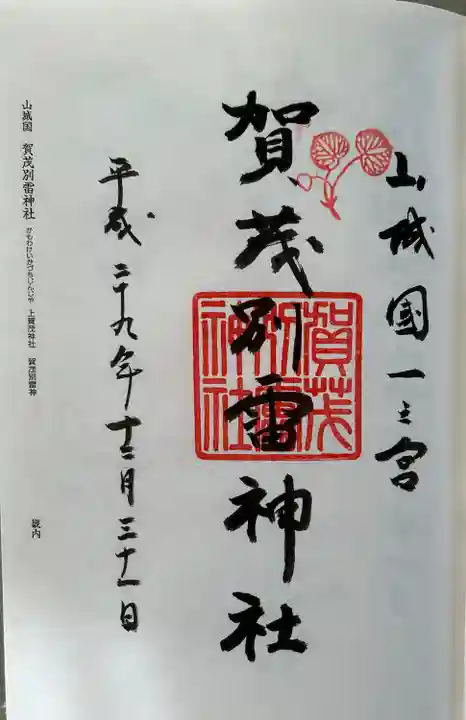 山城國一之宮
賀茂別雷神社
賀茂
別雷
神社
平成二十九年十二月三十一日
山城国 賀茂別雷神社 かもわけいかづちじんじゃ 上賀茂神社 賀茂別雷神
畿内